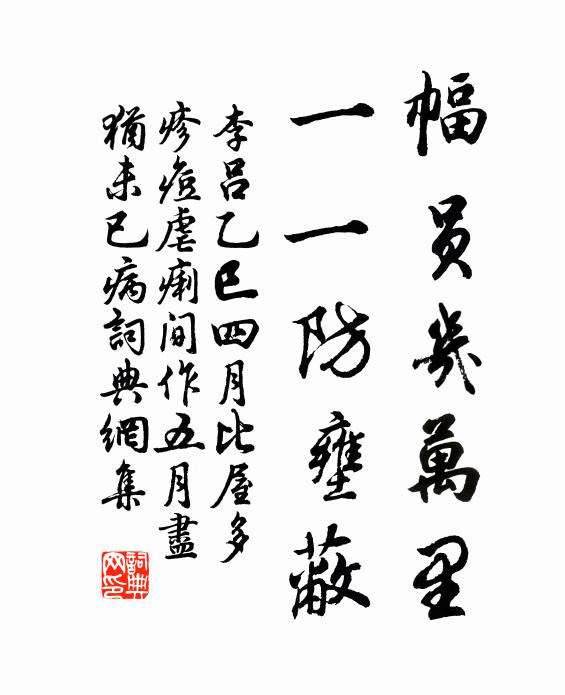 幅員幾萬里
一一防壅蔽
李呂乙巳四月比屋多
疹痘虐痢间作五月盡
猶未已病詞典網集
詞典网印